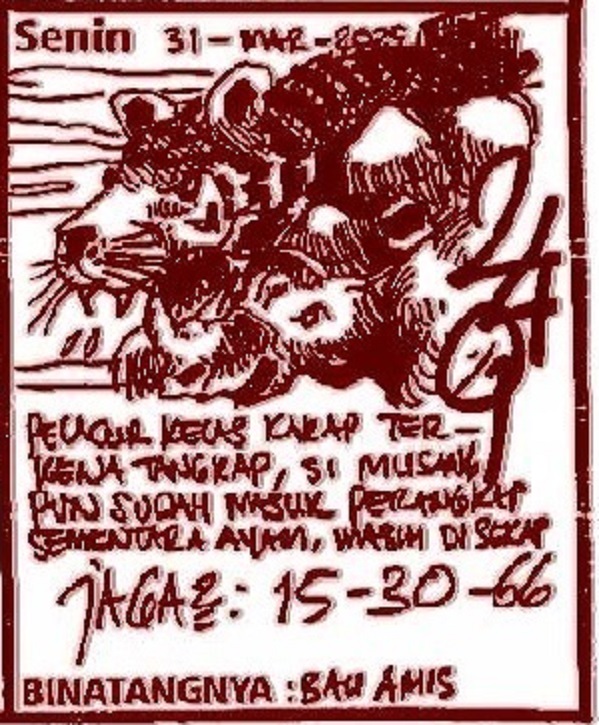 Senin 31-MAR-2025
49
PELACUR KELAS KAKAP TER-
KENA TANGKAP, SI MUSANG
PUN SUDAH MASUK PERANGKAP
SEMENTARA AYAM, MASIH DISEKAP
JAGA2: 15-30-66
BINATANGNYA : BAU AMIS